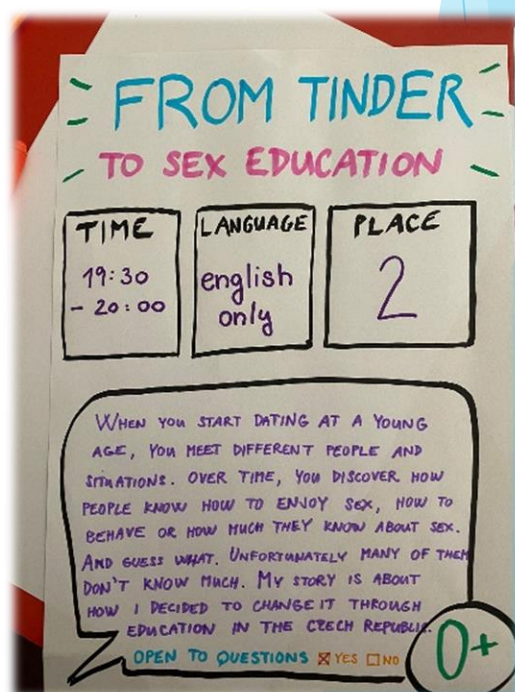 FROM TINDER
TO SEX EDUCATION
TIME
19:30
- 20:00
LANGUAGE
english
only
PLACE
2
WHEN YOU START DATING AT A YOUNG
AGE, YOU MEET DIFFERENT PEOPLE AND
SITUATIONS. OVER TIME, YOU DISCOVER HOW
PEOPLE KNOW HOW TO ENJOY SEX, HOW TO
BEHAVE OR HOW MUCH THEY KNOW ABOUT SEX.
AND GUESS WHAT. UNFORTUNATELY MANY OF THEM
DON'T KNOW MUCH. MY STORY IS ABOUT
HOW I DECIDED TO CHANGE IT THROUGH
EDUCATION IN THE CZECH REPUBLIC.
OPEN TO QUESTIONS ☒ YES ☐ NO
0+